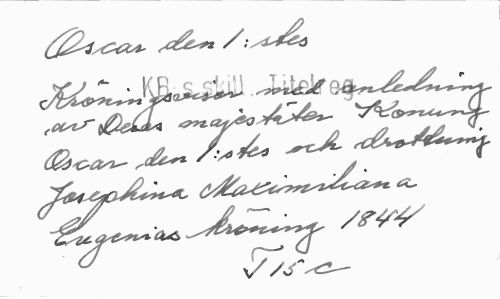 Oscar den 1:stes
KB:s skill. Titelreg
Kröningsvisor med anledning
av Deras majestäter Konung
Oscar den 1:stes och drottning
Josephina Maximiliana
Eugenias kröning 1844
F 15 c